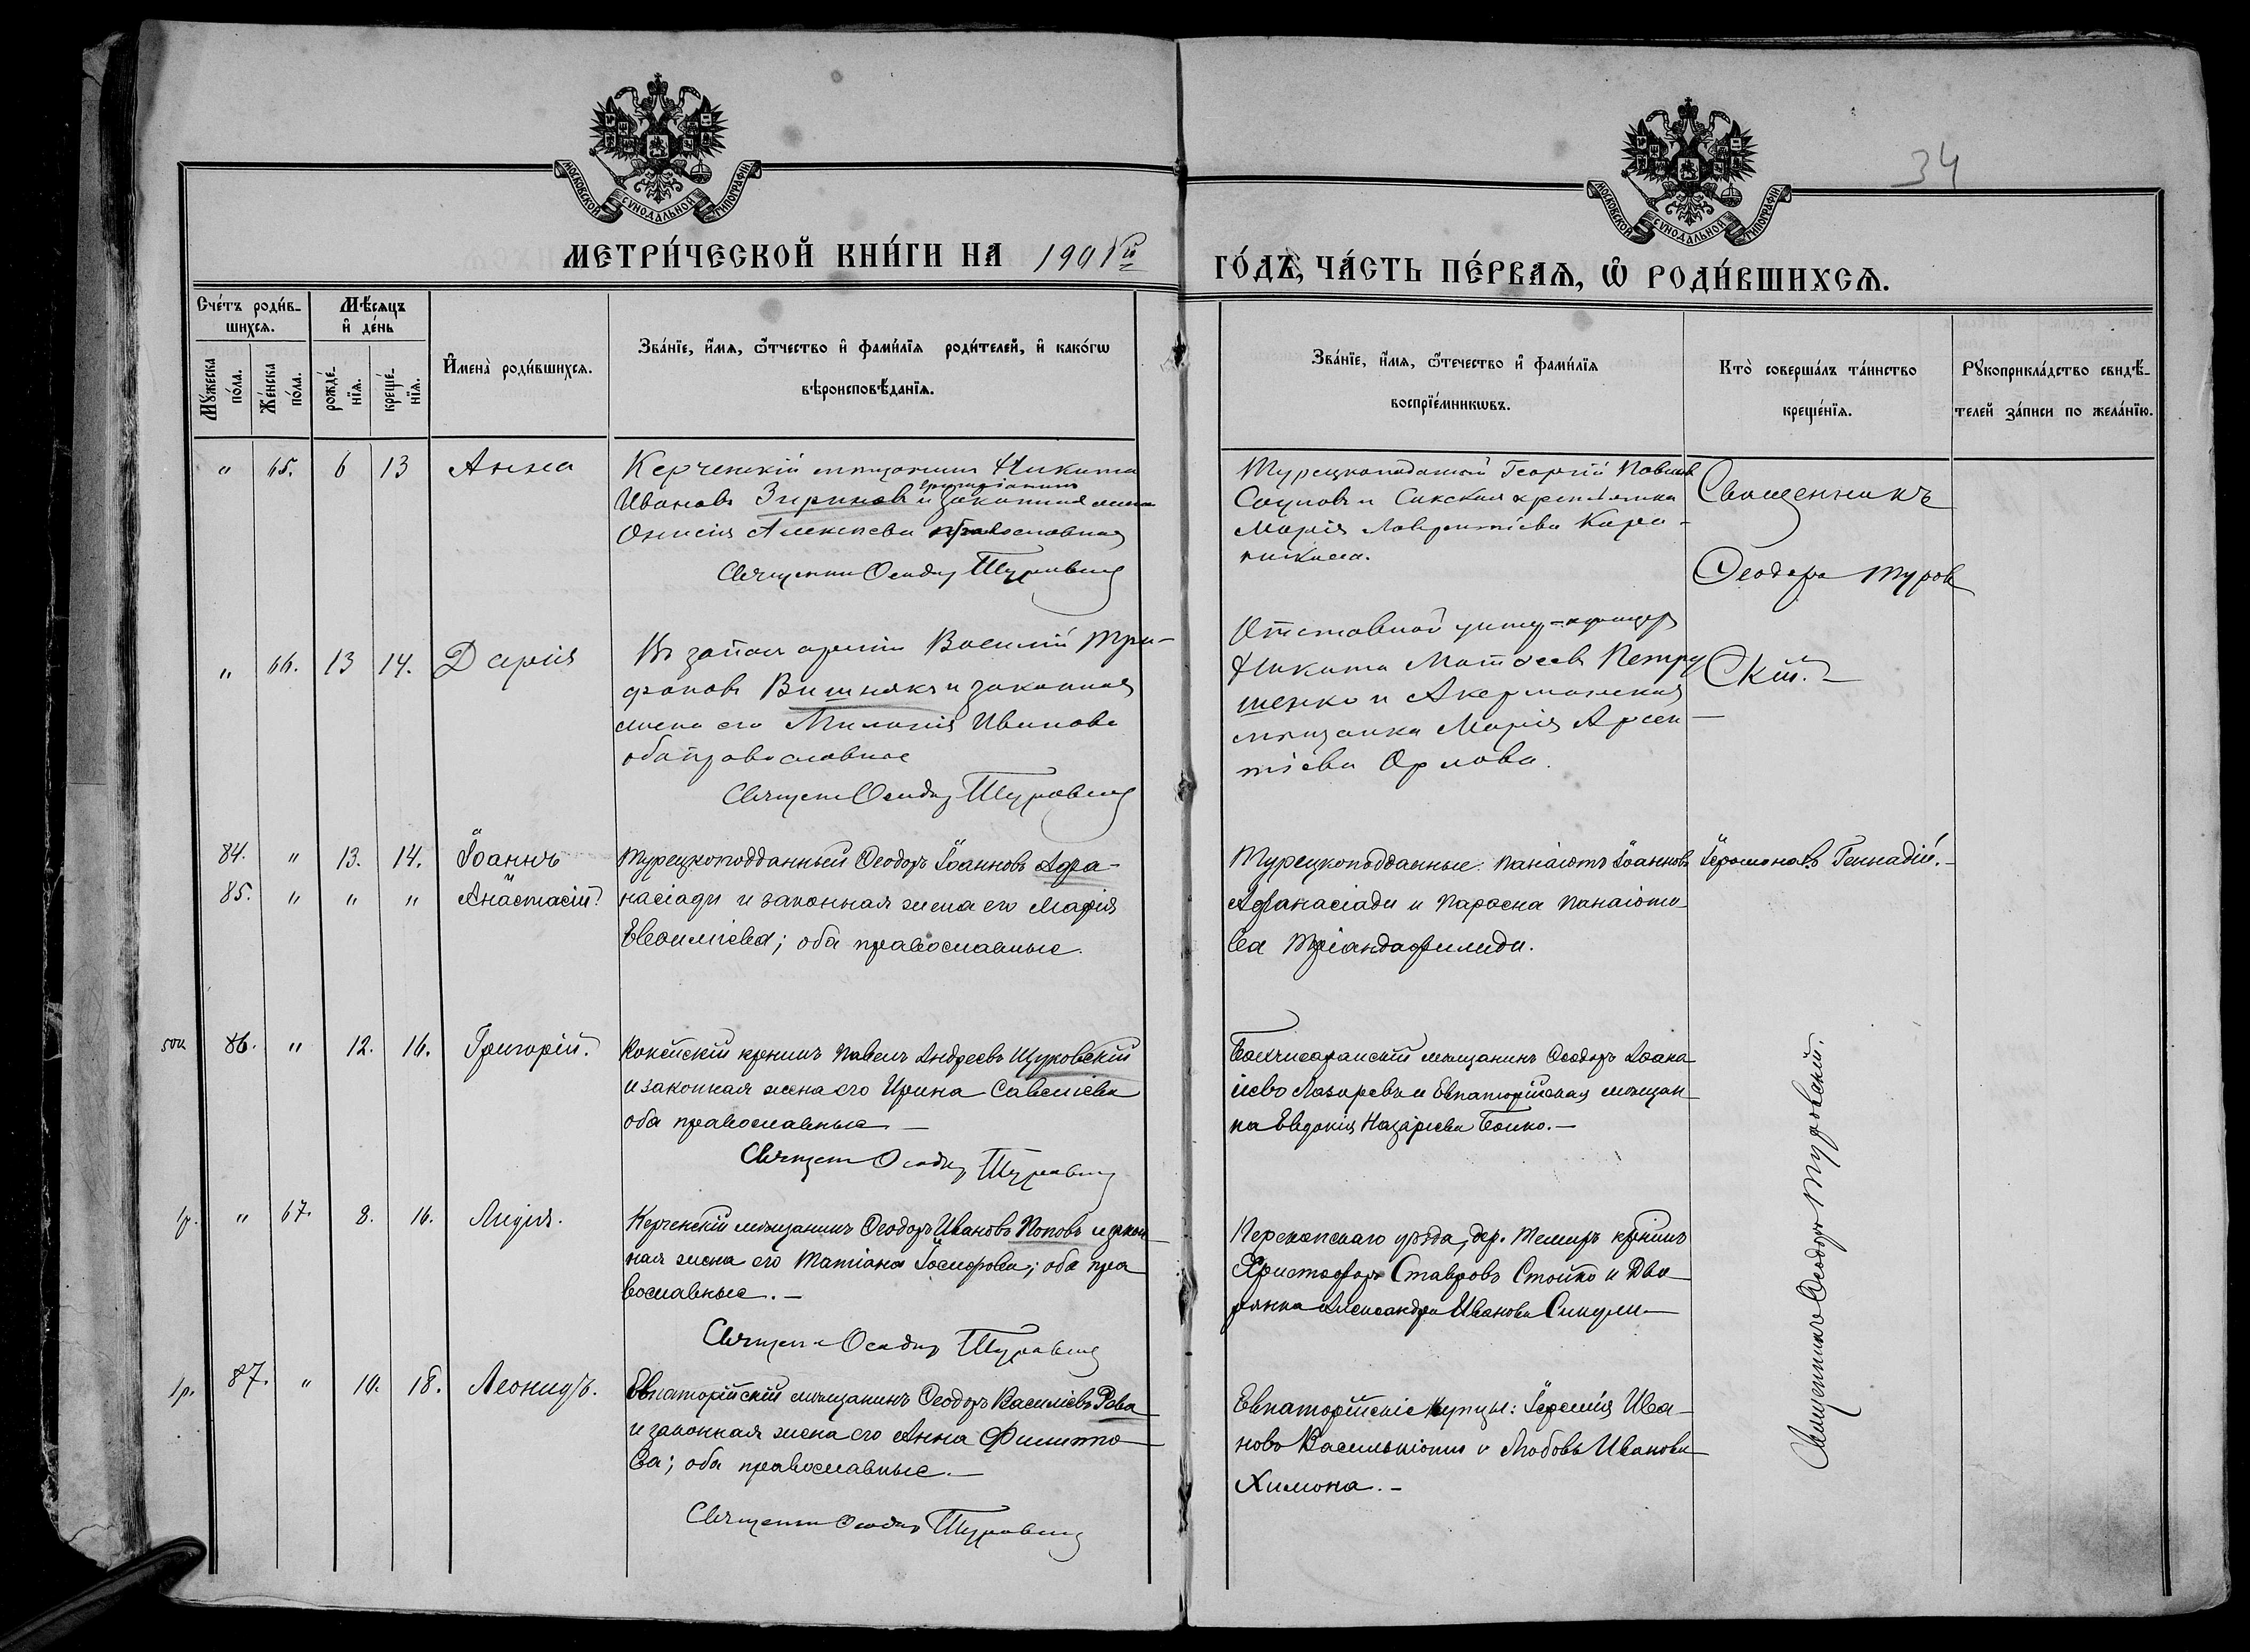 МОСКОВСКОЙ СѴНОДАЛЬНОЙ ТИПОГРАФІИ
МОСКОВСКОЙ СѴНОДАЛЬНОЙ ТИПОГРАФІИ
34
МЕТРИ́ЧЕСКОЙ КНИ́ГИ НА 1901й
ГО́ДЪ, ЧА́СТЬ ПЕ́РВАѦ, Ѡ҆ РОДИ́ВШИХСѦ.
Сче́тъ роди́в-
шихсѧ.
Мꙋ́жеска
по́ла.
Же́нска
по́ла.
Мѣ́сѧцъ
и҆ де́нь
рожде́-
нїѧ.
креще́-
нїѧ.
И҆мена̀ роди́вшихсѧ.
Зва́нїе, и҆́мѧ, ѻ҆́тчество и҆ фами́лїѧ роди́телей, и҆ како́гѡ
вѣроисповѣ́данїѧ.
Зва́нїе, и҆́мѧ, ѻ҆́течество и҆ фами́лїѧ
воспрїе́мникѡвъ.
Кто̀ соверша́лъ та́инство
креще́нїѧ.
Рꙋкоприкла́дство свидѣ́-
телей за́писи по жела́нїю.
" 65. 6 13 Анна
Керченскій мѣщанинъ Никита
Ивановъ Зириновъ и законная жена
Алексеева православная
Священникъ Ѳеодоръ Туровскій
Турецкоподанный Георгій Павловъ
и Сакская крестьянка
Марія Лаврентіева Кара-
Священникъ
Ѳеодоръ Туров
Скій.
" 66. 13 14. Дарія
Въ запасѣ арміи Василій Три-
фоновъ Вишнякъ и законная
жена его Миланія Иванова
оба православные
Священ Ѳеодоръ Туровскій
Отставной унтер-офицеръ
Никита Матѳеевъ Петру
шенко и Акерманская
мѣщанка Марія Арсен-
тіева Орлова.
84. " 13. 14. Іоаннъ
85. " " " Анастасій.
Турецкоподданный Ѳеодоръ Іоанновъ Афа-
насіади и законная жена его Марія
Евѳиміева; оба православные.
Турецкоподданные: Панаіотъ Іоанновъ
Афанасіади и Парасна Панаіото-
ва Тріандафилиди.
Іеромонахъ Геннадій.-
86. " 12. 16. Григорій.
крнинъ Павелъ Андреевъ Щуковскій
и законная жена его Ирина Савеліева
оба православные —
Священ Ѳеодоръ Туровскій
Бахчисарайскій мѣщанинъ Ѳеодоръ Аѳана-
іевъ Лазаревъ и Евпаторійская мѣщан-
ка Евдокія Назаріева Бойко.—
1р. " 67. 8. 16. Лидія.
Керченскій мѣщанинъ Ѳеодоръ Ивановъ Поповъ и закон-
ная жена его Татіана; оба пра
вославные.—
Священ Ѳеодоръ Туровскій
Перекопскаго уѣзда, дер. Темиръ крнинъ
Христофоръ Ставровъ Стойко и Дво-
рянка Александра Иванова
1р. 87. " 10. 18. Леонидъ.
Евпаторійскій мѣщанинъ Ѳеодоръ Василіевъ Рава
и законная жена его Анна Филиппо-
ва; оба православные.—
Священ Ѳеодоръ Туровскій
Евпаторійскіе купцы: Іеремія Ива-
новъ и Любовь Иванова
Химона.—
Священникъ Ѳеодоръ Туровскій.